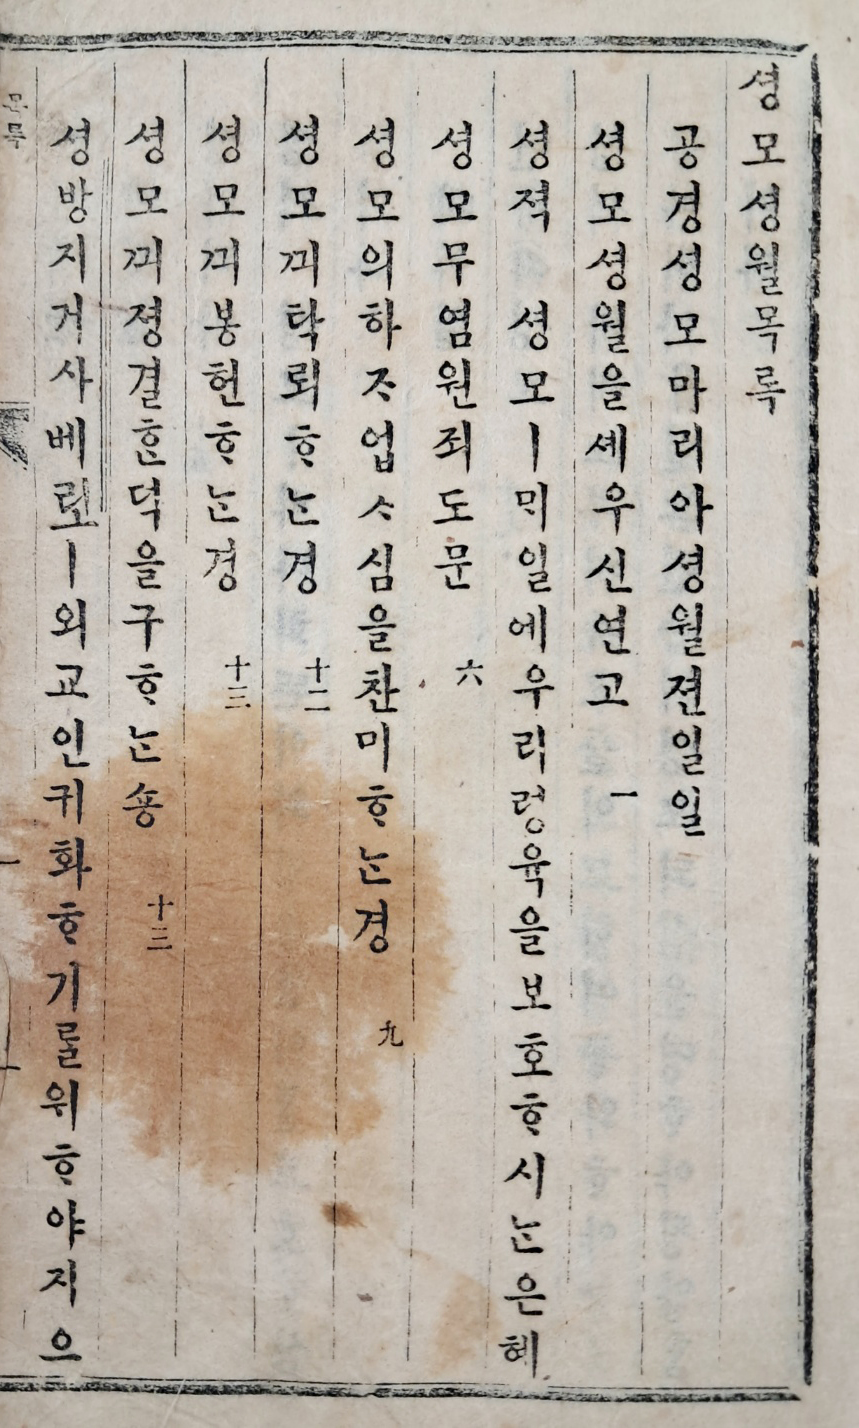 셩모셩월목록
공경셩모마리아셩월젼일일
셩모셩월을셰우신연고 一
셩젹 셩모ㅣ믹일에우리령육을보호ᄒᆞ시ᄂᆞᆫ은혜
셩모무염원죄도문 六
셩모의하ᄌᆞ업ᄉᆞ심을찬미ᄒᆞᄂᆞᆫ경 九
셩모끠탁뢰ᄒᆞᄂᆞᆫ경 十二
셩모끠봉헌ᄒᆞᄂᆞᆫ경 十三
셩모끠졍결ᄒᆞᆫ덕을구ᄒᆞᄂᆞᆫ숑 十三
셩방지거사베료ㅣ외교인귀화ᄒᆞ기ᄅᆞᆯ위ᄒᆞ야지으
목록